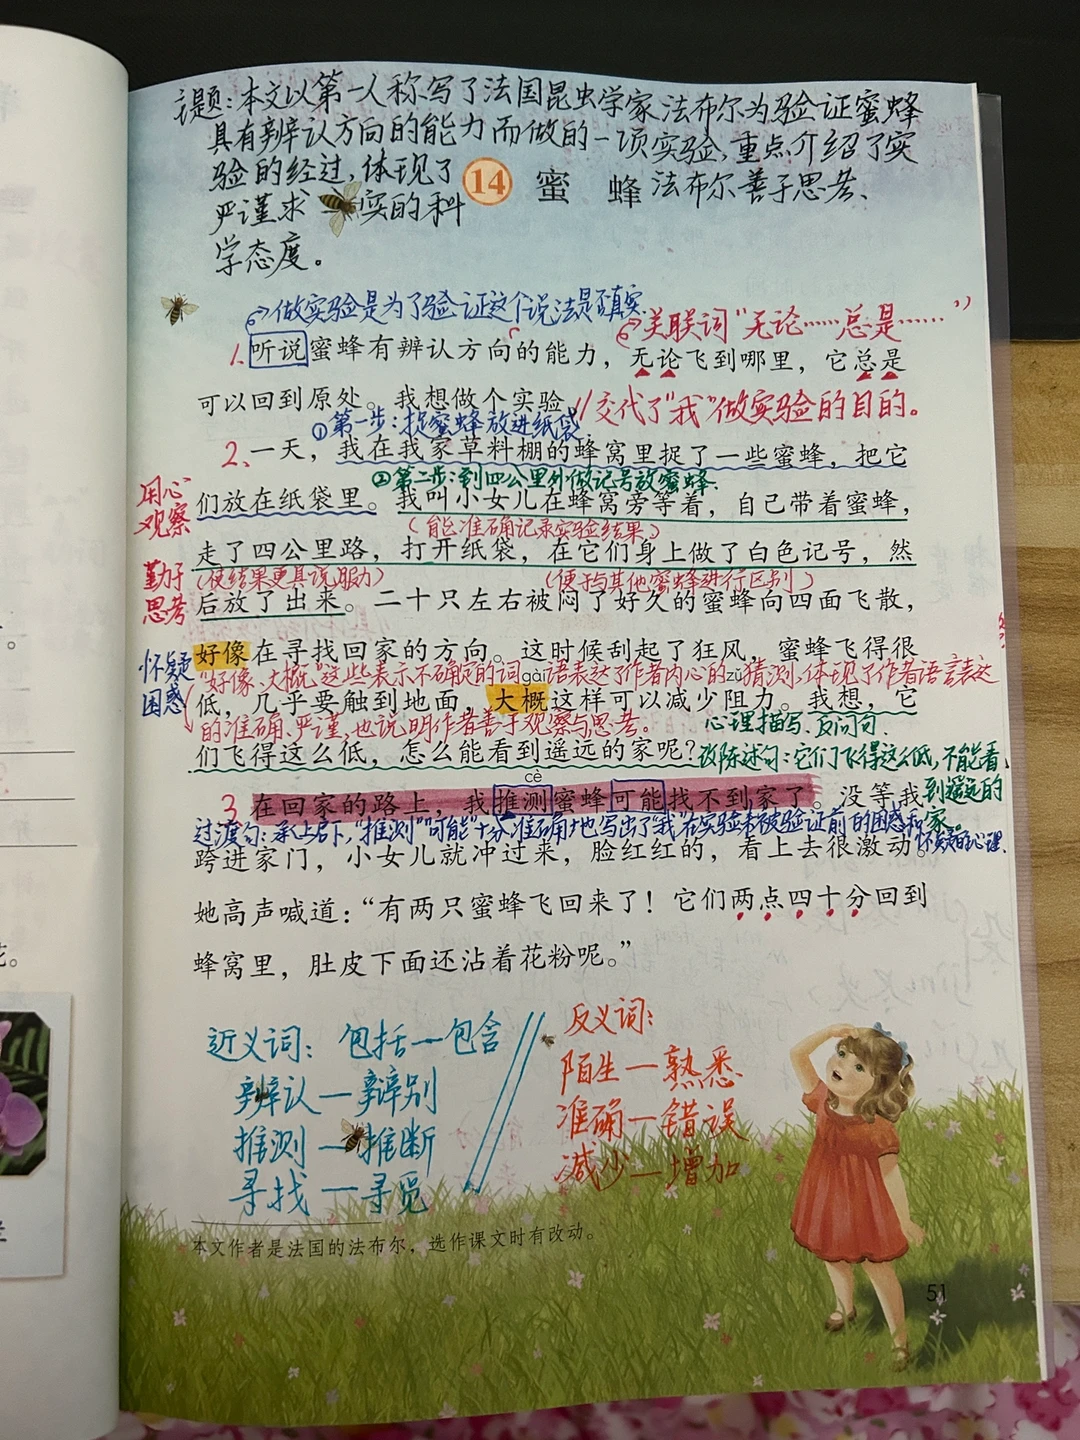 主题:本文以第一人称写了法国昆虫学家法布尔为验证蜜蜂
具有辨认方向的能力而做的一项实验,重点介绍了实
验的经过,体现了
法布尔善于思考、
严谨求实的科
学态度。
14 蜜蜂
做实验是为了验证这个说法是否真实
关联词“无论……总是……”
1. 听说蜜蜂有辨认方向的能力,无论飞到哪里,它总是
可以回到原处。我想做个实验。
//交代了“我”做实验的目的。
①第一步:捉蜜蜂放进纸袋.
2. 一天,我在我家草料棚的蜂窝里捉了一些蜜蜂,把它
②第二步:到四公里外做记号放蜜蜂.
用心
观察
们放在纸袋里。我叫小女儿在蜂窝旁等着,自己带着蜜蜂,
(能准确记录实验结果)
走了四公里路,打开纸袋,在它们身上做了白色记号,然
勤于
思考
(使结果更具说服力)
(便于与其他蜜蜂进行区别)
后放了出来。二十只左右被闷了好久的蜜蜂向四面飞散,
怀疑
困惑
好像在寻找回家的方向。这时候刮起了狂风,蜜蜂飞得很
“好像、大概”这些表示不确定的词语表达了作者内心的猜测,体现了作者语言表达
gài
zǔ
低,几乎要触到地面,大概这样可以减少阻力。我想,它
的准确、严谨,也说明作者善于观察与思考。
心理描写、反问句.
们飞得这么低,怎么能看到遥远的家呢?
改陈述句:它们飞得这么低,不能看
到遥远的
家。
cè
3. 在回家的路上,我推测蜜蜂可能找不到家了。没等我
过渡句:承上启下,“推测”“可能”十分准确,地写出了“我”在实验未被验证前的困惑和
怀疑的心理.
跨进家门,小女儿就冲过来,脸红红的,看上去很激动。
她高声喊道:“有两只蜜蜂飞回来了!它们两点四十分回到
蜂窝里,肚皮下面还沾着花粉呢。”
近义词:包括—包含
辨认—辨别
推测—推断
寻找—寻觅
反义词:
陌生—熟悉
准确—错误
减少—增加
本文作者是法国的法布尔,选作课文时有改动。
51